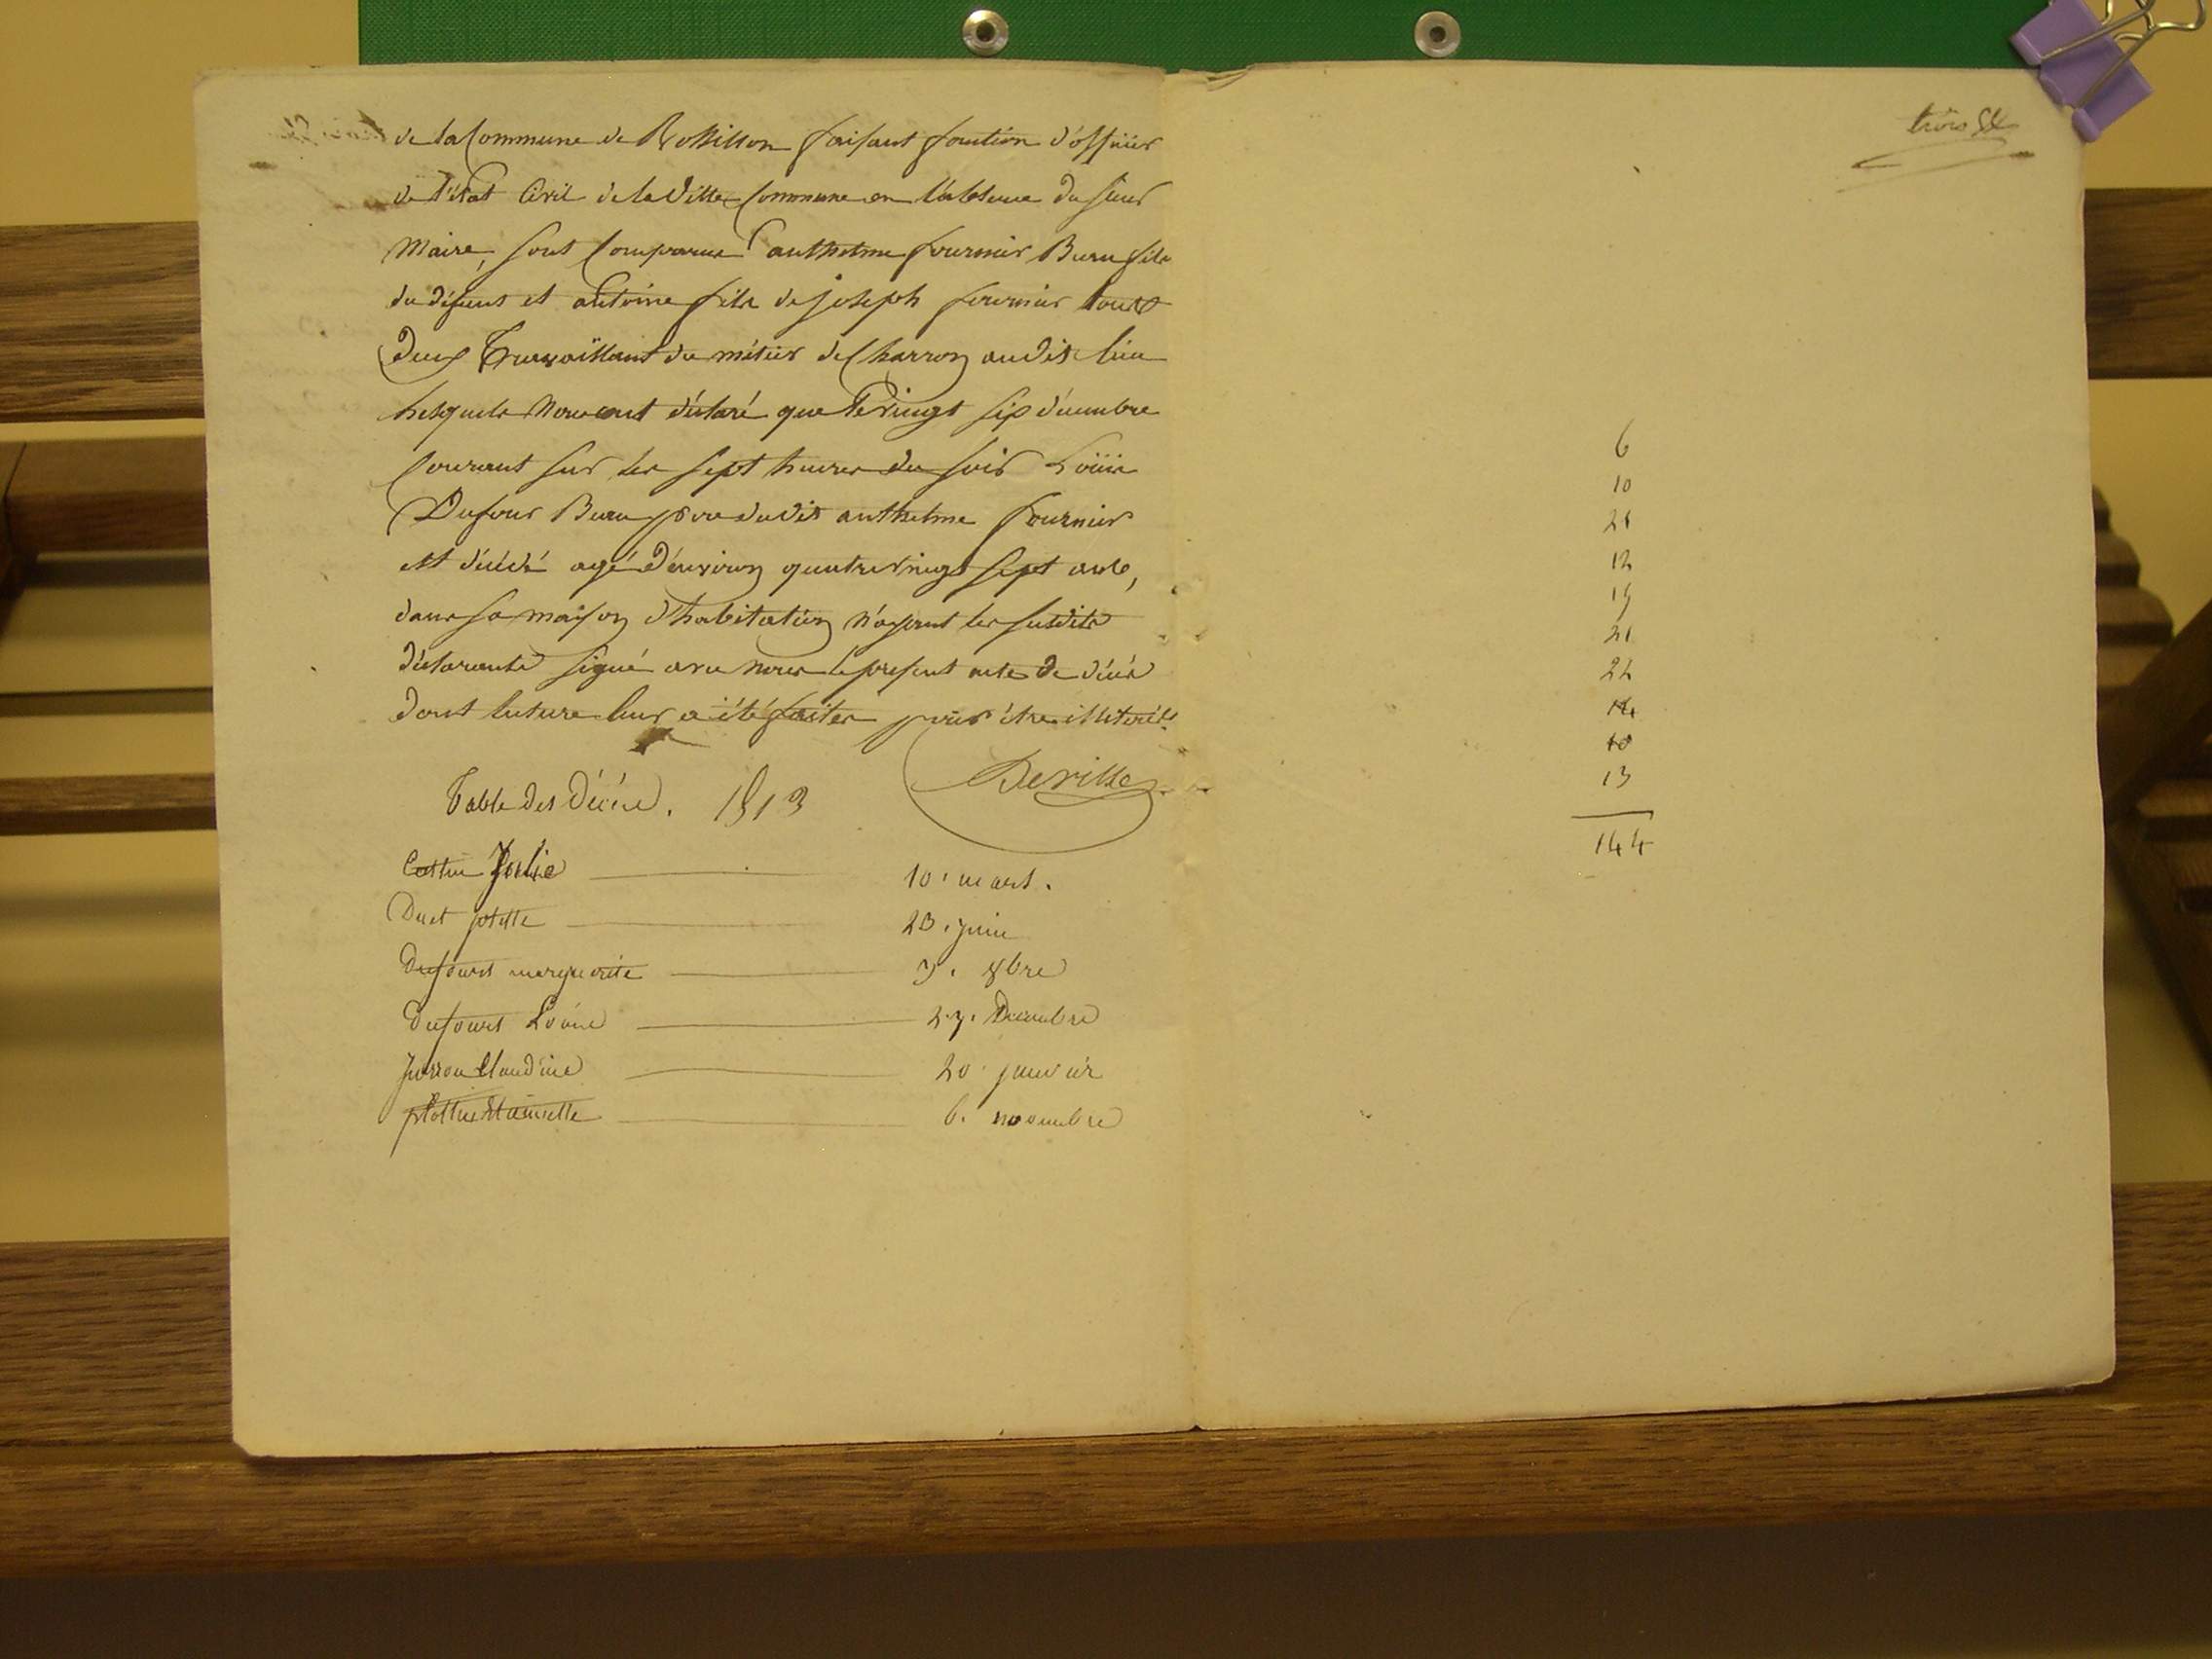 de la Commune de Rossillon faisant fontion d'officier
de l'état Civil de la ditte Commune en l'absence du sieur
Maire, sont Comparus anthelme fournier Buru fils
du défunt et antoine fils de joseph fournier tous
Deux Travaillant du métier de Charron au dit lieu
Lesquels Nous ont déclaré que le vingt six décembre
Courant sur les sept heures du soir Loüis
Dufour Buru père du dit anthelme fournier
est décédé agé d'environ quatre vingt sept ans,
dans sa maison d'habitation n'ayant les susdits
déclarants signé avec nous le présent acte de décès
dont lecture leur a été faites pour être illiterés.
Deville
Table des Décès. 1813
Cottin Julie 10. mars.
Duet josette 23. juin
Dufours marguerite 3. 8bre
Dufours Loüis 27. Décembre
Juron Claudine 20 janvier
6. novembre
trois
6
10
21
12
15
21
22
14
10
13
144